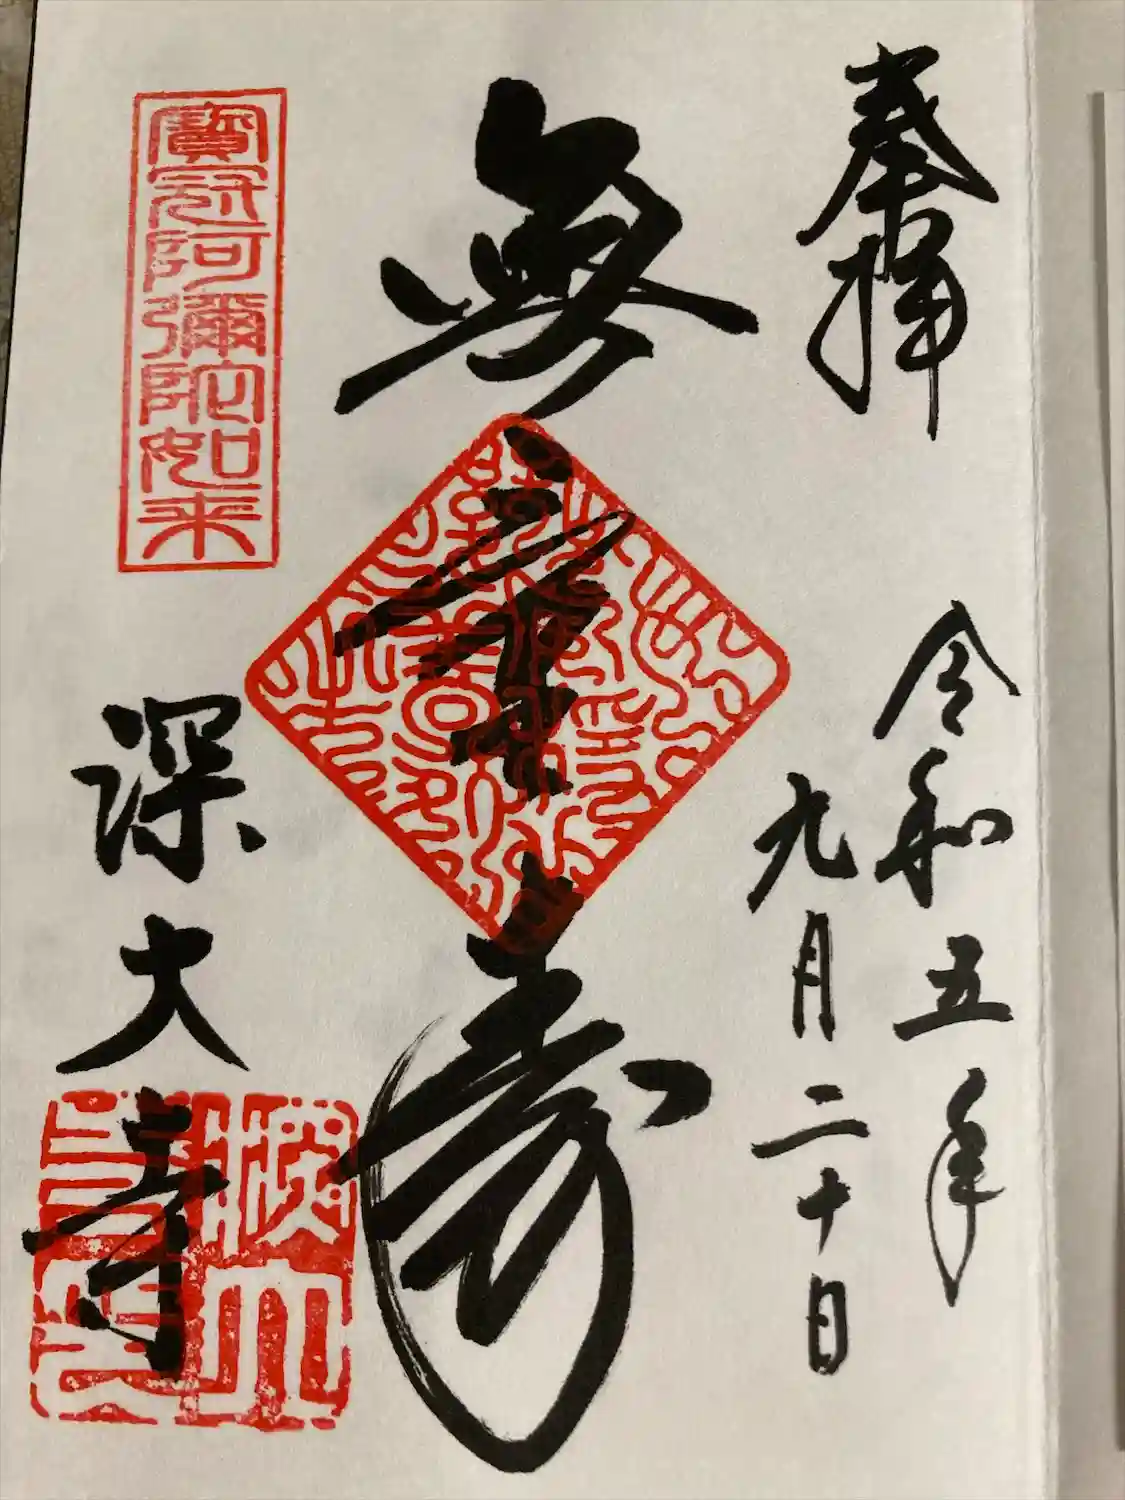 奉拝
令和五年
九月二十日
無量壽
寶冠阿彌陀如来
深大寺
深大寺印